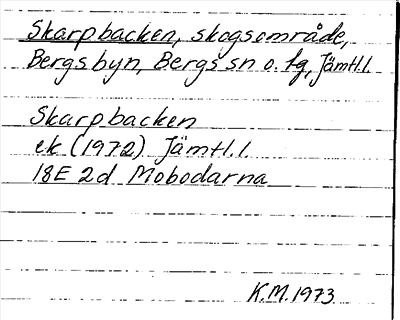 Skarpbacken, skogsområde,
Bergsbyn, Bergs sn o. tg, Jämtl.l.
Skarpbacken
ek (1972) Jämtl.l.
18E 2d Mobodarna
K.M. 1973